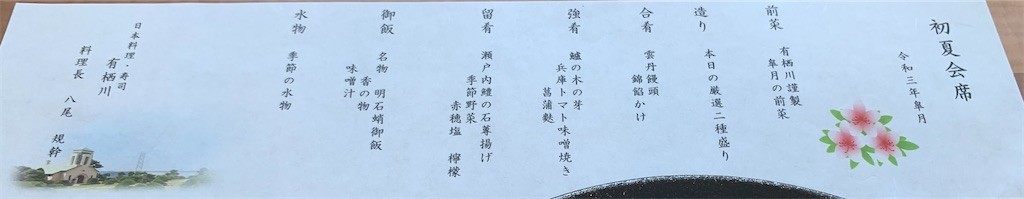 初夏会席
令和三年皐月
前菜
有栖川謹製
皐月の前菜
造り
本日の厳選二種盛り
合肴
雲丹饅頭
錦餡かけ
強肴
鱸の木の芽
兵庫トマト味噌焼き
菖蒲麩
留肴
瀬戸内鱧の石蓴揚げ
季節野菜
赤穂塩 檸檬
御飯
名物 明石蛸御飯
香の物
味噌汁
水物
季節の水物
日本料理・寿司
有栖川
料理長 八尾 規幹